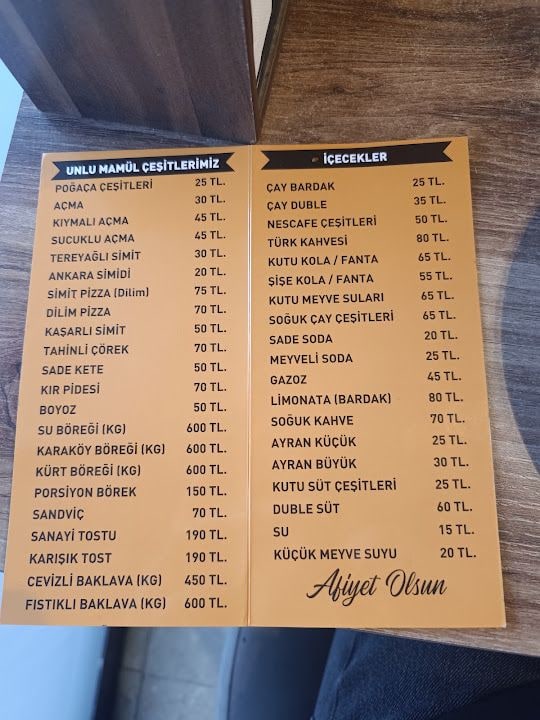 UNLU MAMÜL ÇEŞİTLERİMİZ
POĞAÇA ÇEŞİTLERİ 25 TL.
AÇMA 30 TL.
KIYMALI AÇMA 45 TL.
SUCUKLU AÇMA 45 TL.
TEREYAĞLI SİMİT 30 TL.
ANKARA SİMİDİ 20 TL.
SİMİT PİZZA (Dilim) 75 TL.
DİLİM PİZZA 70 TL.
KAŞARLI SİMİT 50 TL.
TAHİNLİ ÇÖREK 70 TL.
SADE KETE 50 TL.
KIR PİDESİ 70 TL.
BOYOZ 50 TL.
SU BÖREĞİ (KG) 600 TL.
KARAKÖY BÖREĞİ (KG) 600 TL.
KÜRT BÖREĞİ (KG) 600 TL.
PORSİYON BÖREK 150 TL.
SANDVİÇ 70 TL.
SANAYİ TOSTU 190 TL.
KARIŞIK TOST 190 TL.
CEVİZLİ BAKLAVA (KG) 450 TL.
FISTIKLI BAKLAVA (KG) 600 TL.
İÇECEKLER
ÇAY BARDAK 25 TL.
ÇAY DUBLE 35 TL.
NESCAFE ÇEŞİTLERİ 50 TL.
TÜRK KAHVESİ 80 TL.
KUTU KOLA / FANTA 65 TL.
ŞİŞE KOLA / FANTA 55 TL.
KUTU MEYVE SULARI 65 TL.
SOĞUK ÇAY ÇEŞİTLERİ 65 TL.
SADE SODA 20 TL.
MEYVELİ SODA 25 TL.
GAZOZ 45 TL.
LİMONATA (BARDAK) 80 TL.
SOĞUK KAHVE 70 TL.
AYRAN KÜÇÜK 25 TL.
AYRAN BÜYÜK 30 TL.
KUTU SÜT ÇEŞİTLERİ 25 TL.
DUBLE SÜT 60 TL.
SU 15 TL.
KÜÇÜK MEYVE SUYU 20 TL.
Afiyet Olsun